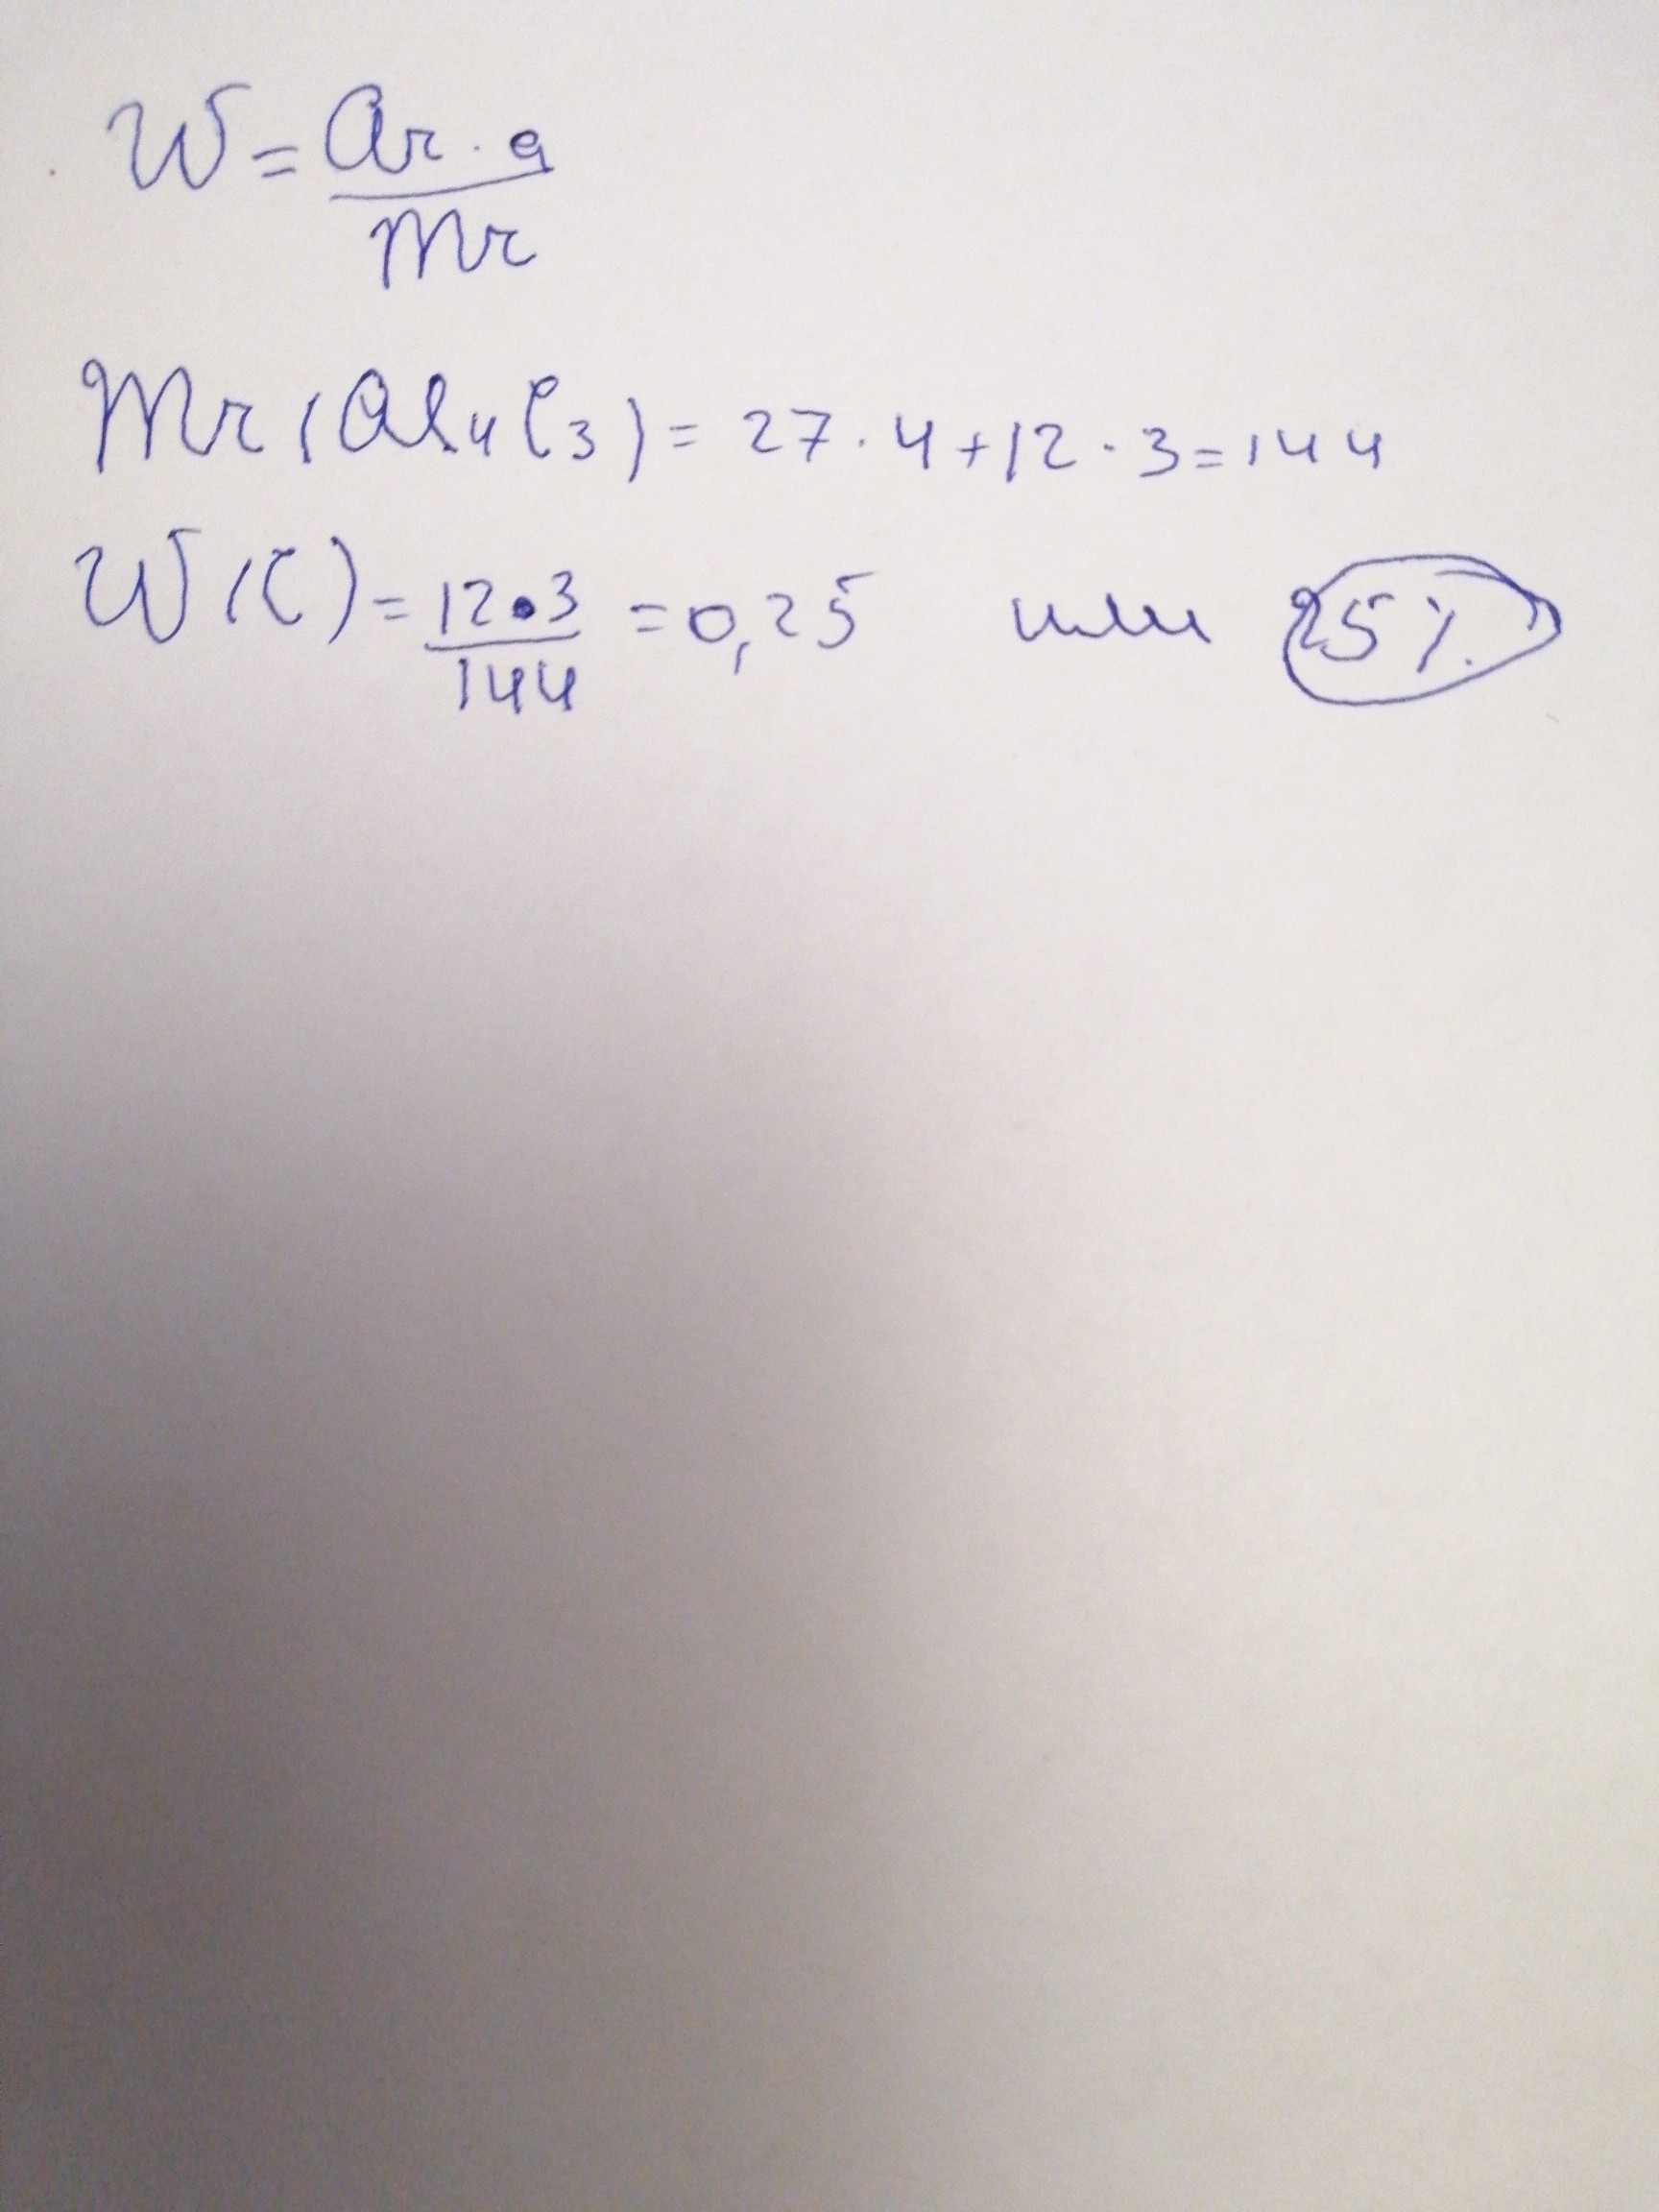 W = Ar · a / Mr
Mr (Al₄C₃) = 27 · 4 + 12 · 3 = 144
W (C) = 12 • 3 / 144 = 0,25 или 25 %